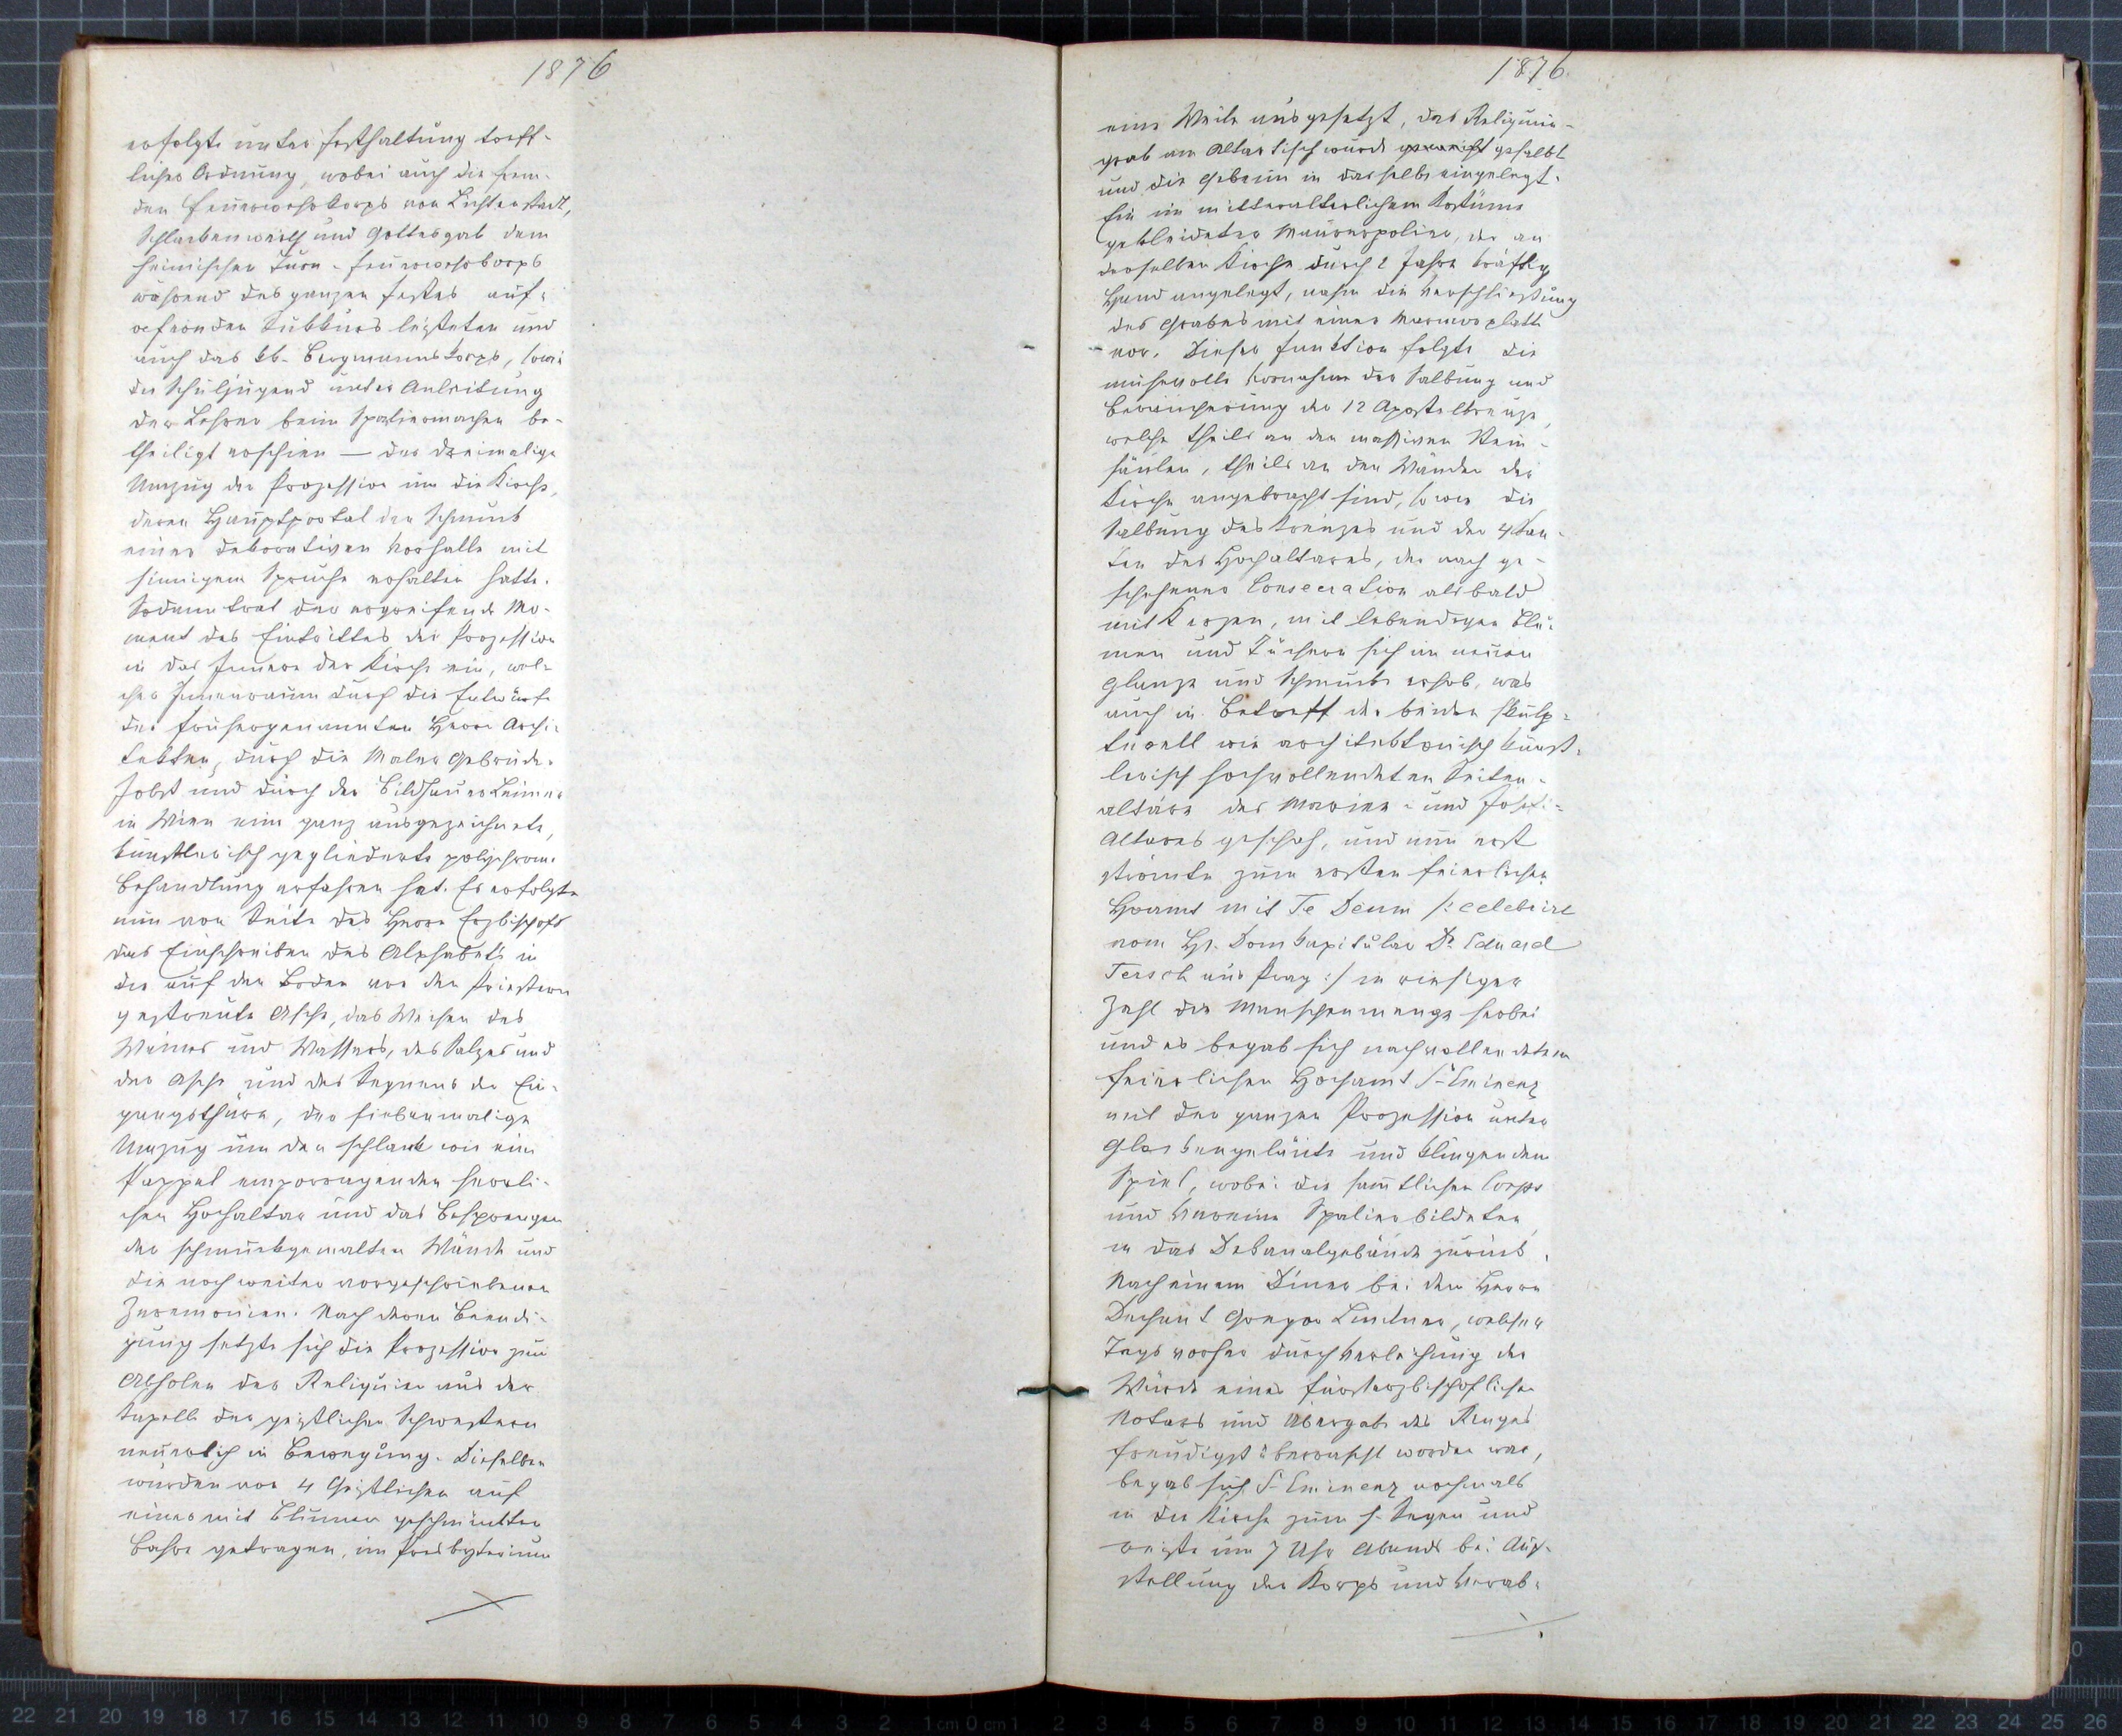 1876
erfolgte unter Festhaltung treff-
licher Ordnung, wobei auch die frem-
den Feuerwehrkorps von Lichtenstadt,
Schlackenwerth und Gottesgab dem
heimischen Turn-Feuerwehrkorps
während des ganzen Festes auf-
opfernden Sukkurs leisteten und
auch das kk. Bergmannskorps, sowie
die Schuljugend unter Anleitung
der Lehrer beim Spaliermachen be-
theiligt erschien — der dreimalige
Umzug der Prozession um die Kirche,
deren Hauptportal den Schmuck
einer dekorativen Vorhalle mit
sinnigem Spruche erhalten hatte.
Sodann trat der ergreifende Mo-
ment des Eintrittes der Prozession
in das Innere der Kirche ein, wel-
cher Innenraum durch die Entwürfe
des frühergenannten Herrn Archi-
tekten, durch die Maler Gebrüder
Jobst und durch den Bildhauer Leimer
in Wien eine ganz ausgezeichnete,
künstlerisch gegliederte polychrome
Behandlung erfahren hat. Es erfolgte
nun von Seite des Herrn Erzbischofs
das Einschreiben des Alphabets in
die auf den Boden von den Priestern
gestreute Asche, das Weihen des
Weines und Wassers, des Salzes und
der Asche und des Segnens der Ein-
gangsthüre, der siebenmalige
Umzug um den schlank wie eine
Pappel emporragenden herrli-
chen Hochaltar und das Besprengen
der schmuckgemalten Wände und
die noch weiter vorgeschriebenen
Zeremonien. Nach deren Beendi-
gung setzte sich die Prozession zum
Abholen der Reliquien aus der
Kapelle der geistlichen Schwestern
neuerlich in Bewegung. Dieselben
wurden von 4 Geistlichen auf
einer mit Blumen geschmückten
Bahre getragen, im Presbyterium
1876.
eine Weile ausgesetzt, das Reliquien-
grab am Altartisch wurde geweiht gesalbt
und die Gebeine in dasselbe eingelegt.
Ein im mittelalterlichem Kostüme
gekleideter Maurerpolier, der an
derselben Kirche durch 2 Jahre kräftig
Hand angelegt, nahm die Verschließung
des Grabes mit einer Marmorplatte
vor. Dieser Funktion folgte die
mühevolle Vornahme der Salbung und
Beräucherung der 12 Apostelkreuze,
welche theils an den massiven Stein-
säulen, theils an den Wänden der
Kirche angebracht sind, sowie die
Salbung des Kreuzes und der 4 Kan-
ten des Hochaltares, der nach ge-
schehener Consecration alsbald
mit Kerzen, mit lebendigen Blu-
men und Tüchern sich im neuen
Glanze und Schmucke erhob, was
auch in Betreff der beiden skulp-
turell wie architektonisch künst-
lerisch hochvollendeten Seiten-
altäre des Marien- und Josefi-
Altares geschah, und nun erst
strömte zum ersten feierlichen
Hoamt mit Te Deum /: celebrirt
vom Hr. Domkapitular Dr Eduard
Tersch aus Prag :/ in riesiger
Zahl die Menschenmenge herbei
und es begab sich nach vollendetem
feierlichen Hochamt Sr Eminenz
mit der ganzen Prozession unter
Glockengeläute und klingendem
Spiel, wobei die sammtlichen Corps
und Vereine Spalier bildeten,
in das Dekanalgebäude zurück.
Nach einem Diner bei dem Herrn
Dechant Gregor Lindner, welcher
Tags vorher durch Verleihung der
Würde eines fürsterzbischöflichen
Notars und Übergabe des Ringes
freudigst überrascht worden war,
begab sich Sr Eminenz nochmals
in die Kirche zum h. Segen und
reiste um 7 Uhr Abends bei Auf-
stellung der Korps und Verab-